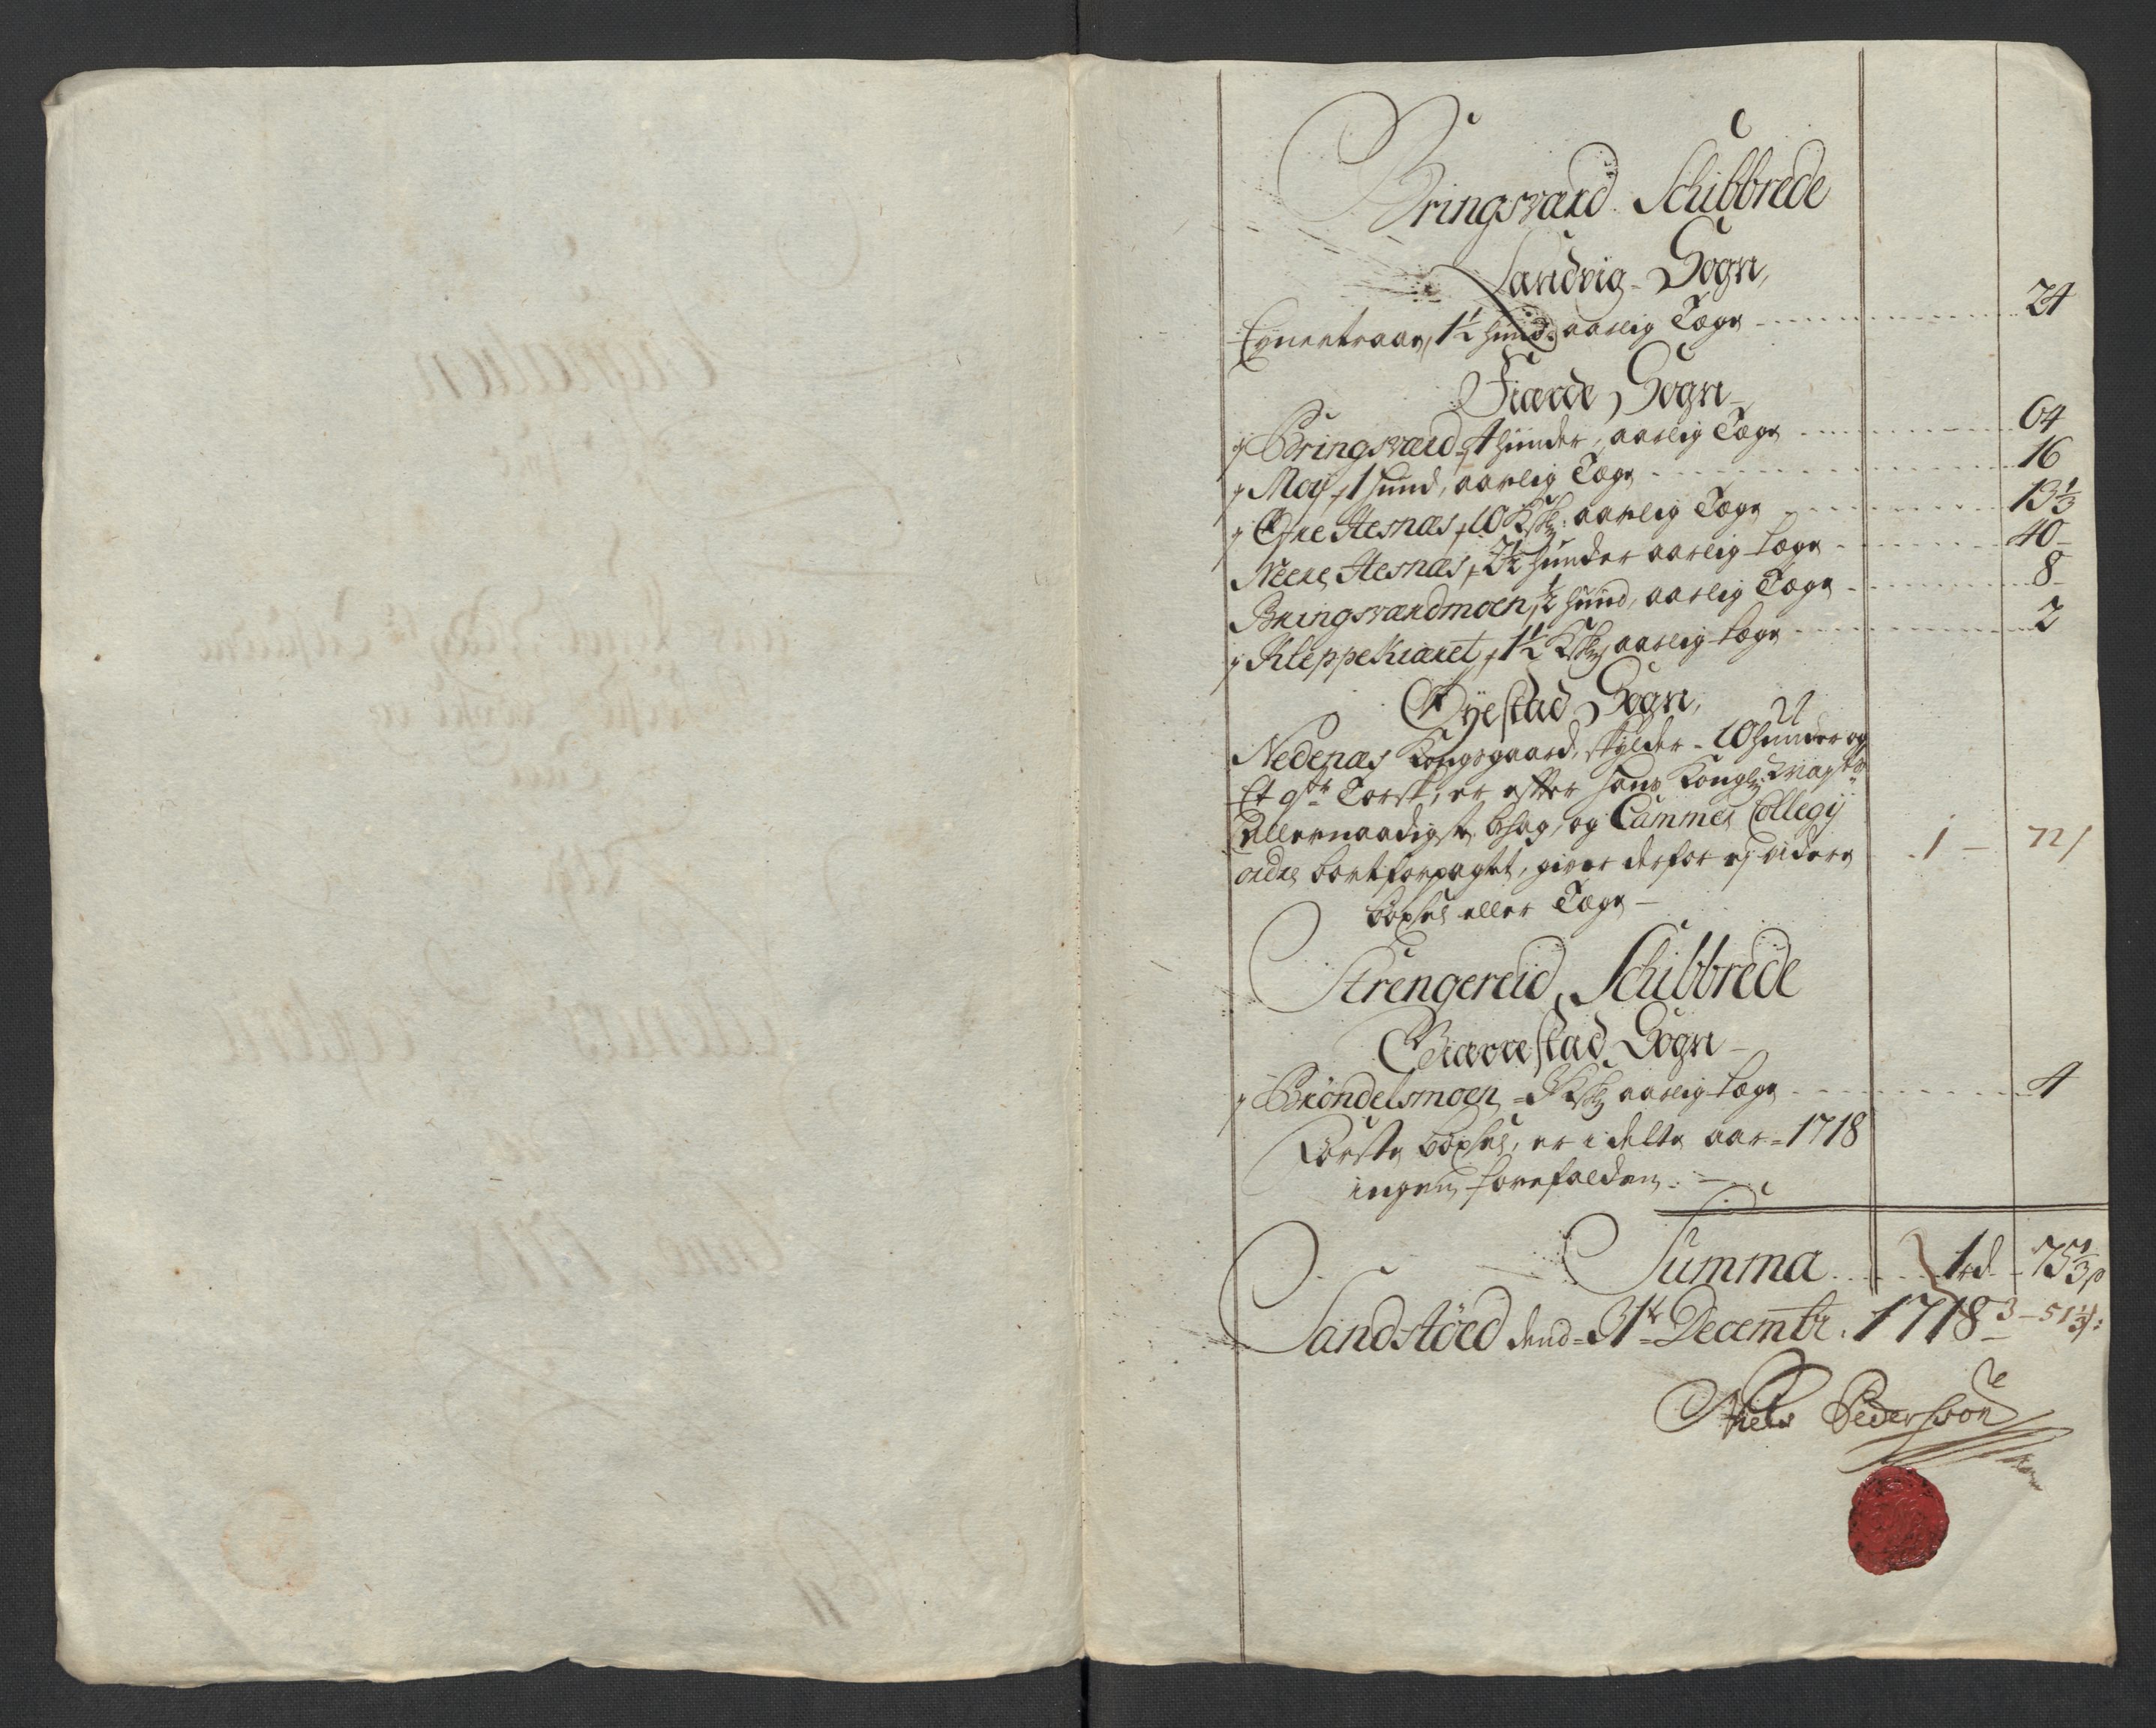 Bringsværd Schibbrede
Landvig Sogn,
Egnertraar, 1½ hund: aarlig Tage 24
Fiære Sogn
Bringsværd, 4 hunder, aarlig Tage 64
Moy, 1 hund, aarlig Tage 16
Øfre Hesnæs, 10 Kskz: aarlig Tage 13⅓
Neere Hesnæs, 2½ hunder aarlig tage 40
Bringsværdmoen, ½ hund, aarlig Tage 8
Kleppekiæret, 1½ Kskz aarlig tage 2
Øyestad Sogn,
Nedenæs Kongsgaard, skylder 10 hunder og
Et qtr Torsk, er efter hans Kongl: Mayts
allernaadigste behag, og Cammer Collegij
ordre bortforpagtet, giver derfor ej videre 1 – 72
böxsel eller Tage
Strengereid Schibbrede
Biærrestad Sogn
Bröndelsmoen 3 Kskz aarlig tage 4
Förste böxsel, er i dette aar 1718
ingen forefalden.
Summa 1rd 75⅓ s
Sandstöed dend 31te Decembr. 1718 3 – 51⅓
Niels Pedersson